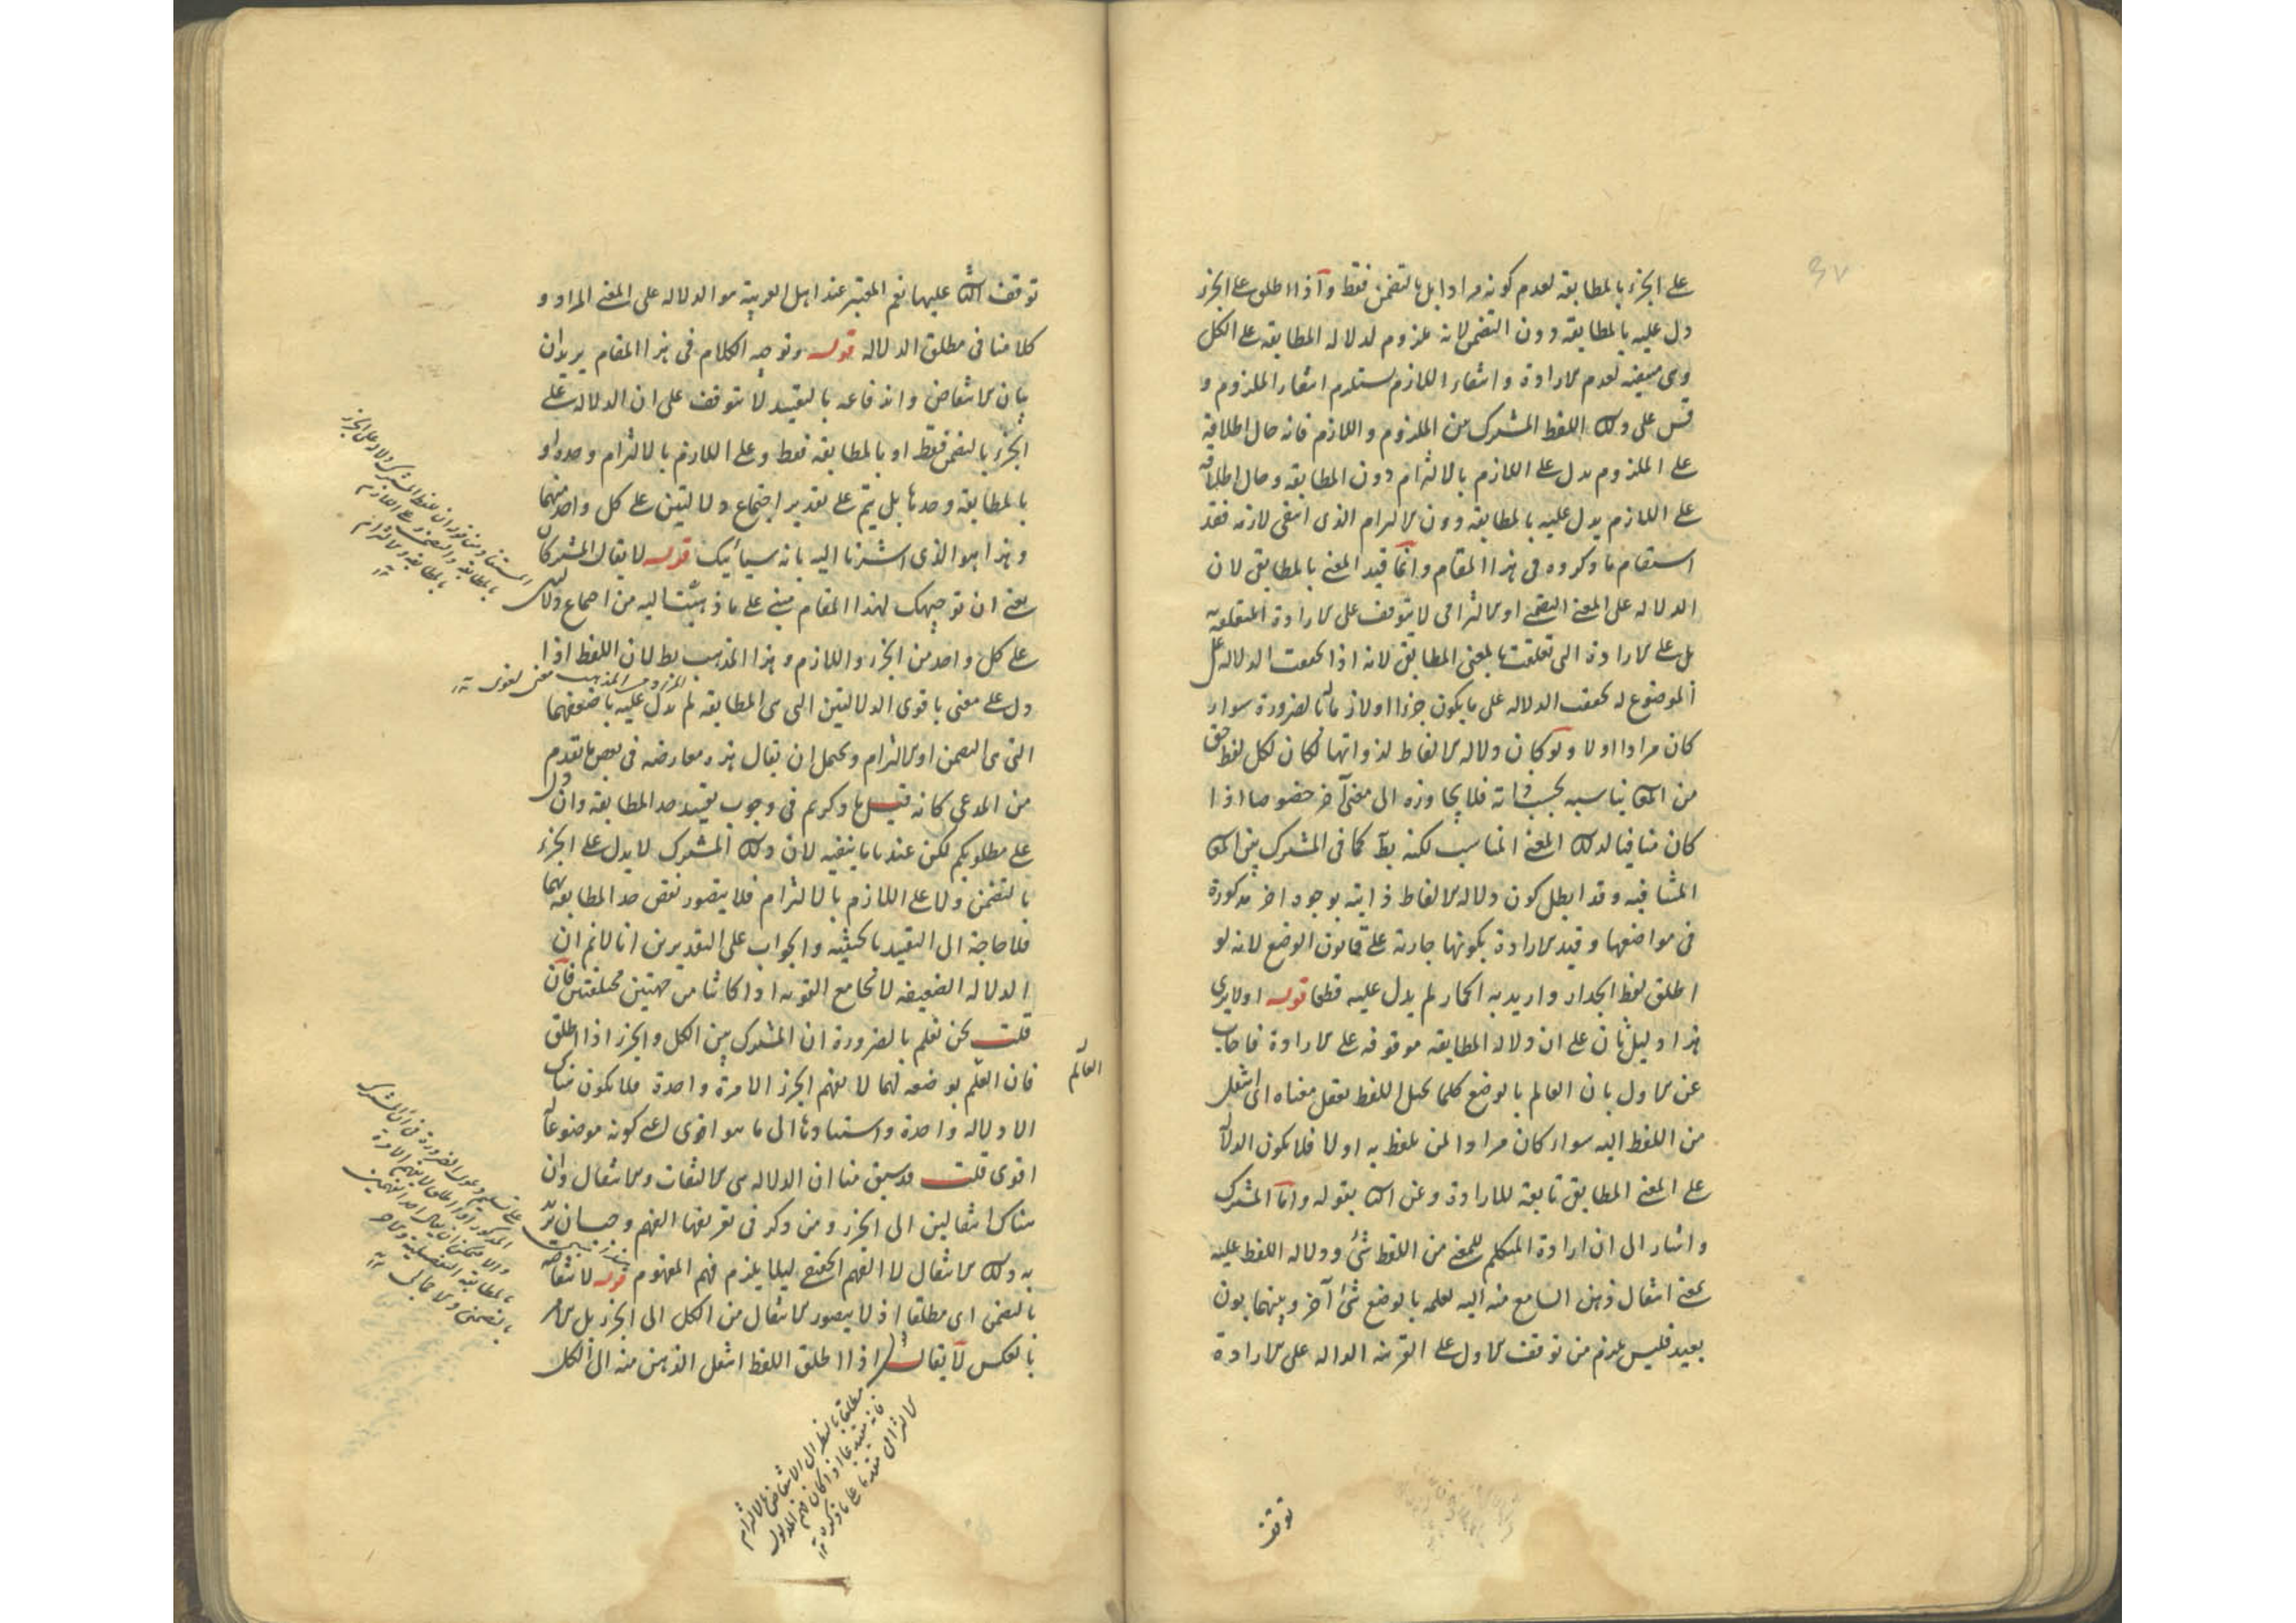 ٣٧
على الجزء بالمطابقه لعدم كونه مرادا بل بالتضمن فقط واذا اطلق على الجزء
دل عليه بالمطابقه دون التضمن لانه لازم لدلاله المطابقه على الكل
وهى منتفيه لعدم الارادة وانتفاء اللازم يستلزم انتفاء الملزوم و
قس على ذلك اللفظ المشترك بين الملزوم واللازم فانه حال اطلاقه
على الملزوم يدل على اللازم بالالتزام دون المطابقه وحال اطلاقه
على اللازم يدل عليه بالمطابقه دون الالتزام الذى انتفى لازمه فقد
استقام ما ذكروه فى هذا المقام وانما قيد المعنى بالمطابقى لان
الدلاله على المعنى التضمنى او الالتزامى لا يتوقف على الارادة المتعلقه به
بل على الارادة التى تعلقت بالمعنى المطابقى لانه اذا تحققت الدلاله على
الموضوع له تحققت الدلاله على ما يكون جزءا او لازما له بالضرورة سواء
كان مرادا او لا ولو كان دلاله الالفاظ لذواتها لكان لكل لفظ حق
من المعانى يناسبه بحسب ذاته فلا يجاوزه الى معنى آخر خصوصا اذا
كان منافيا لذلك المعنى المناسب لكنه بط كما فى المشترك بين المعانى
المتنافيه وقد ابطل كون دلاله الالفاظ ذاتيه بوجوه اخر مذكورة
فى مواضعها وقيد الارادة بكونها جاريه على قانون الوضع لانه لو
اطلق لفظ الجدار واريد به الحمار لم يدل عليه قطعا قوله اولا يرى
هذا دليل ثان على ان دلاله المطابقه موقوفه على الارادة فاجاب
عن الاول بان العالم بالوضع كلما تخيل اللفظ تعقل معناه اى انتقل
من اللفظ اليه سواء كان مرادا لمن تلفظ به او لا فلا يكون الدلاله
على المعنى المطابقى تابعة للارادة وعن الثانى بقوله واما المشترك
واشار الى ان ارادة المتكلم للمعنى من اللفظ شئ ودلاله اللفظ عليه
بمعنى انتقال ذهن السامع منه اليه لعلمه بالوضع شئ آخر وبينهما بون
بعيد فليس يلزم من توقف الاول على القرينه الداله على الارادة
توقف
توقف الثانى عليها نعم المعتبر عند اهل العربية هو الدلاله على المعنى المراد و
كلامنا فى مطلق الدلاله قوله وتوجيه الكلام فى هذا المقام يريد ان
بيان الانتقاض واندفاعه بالتقييد لا يتوقف على ان الدلاله على
الجزء بالتضمن فقط او بالمطابقه فقط وعلى اللازم بالالتزام وحده او
بالمطابقه وحدها بل يتم على تقدير اجتماع دلالتين على كل واحد منهما
وهذا هو الذى اشرنا اليه بانه سيأتيك قوله لا يقال المشترك
يعنى ان توجيهك لهذا المقام مبنى على ما ذهبت اليه من اجتماع دلالتين
على كل واحد من الجزء واللازم وهذا المذهب بط لان اللفظ اذا
دل على معنى باقوى الدلالتين التى هى المطابقه لم يدل عليه باضعفهما
التى هى التضمن او الالتزام ويحتمل ان يقال هذه معارضه فى بعض ما تقدم
من المدعى كانه قيل ما ذكرتم فى وجوب تقييد حد المطابقه وان دل
على مطلوبكم لكن عندنا ما ينفيه لان ذلك المشترك لا يدل على الجزء
بالتضمن ولا على اللازم بالالتزام فلا يتصور نقض حد المطابقه بهما
فلا حاجة الى التقييد بالحيثيه والجواب على التقديرين انا لا نم ان
الدلاله الضعيفه لا تجامع القويه اذا كانتا من جهتين مختلفتين فان
قلت نحن نعلم بالضرورة ان المشترك بين الكل والجزء اذا اطلق
العالم
فان العلم بوضعه لهما لا يفهم الجزء الا مرة واحدة فلا يكون هناك
الا دلاله واحدة واستنادها الى ما هو اقوى اعنى كونه موضوعا له
اقوى قلت قد سبق منا ان الدلاله هى الالتفات والانتقال وان
هناك انتقالين الى الجزء ومن ذكر فى تعريفها الفهم وجب ان يريد
به ذلك الانتقال لا الفهم الحقيقى ليلا يلزم فهم المفهوم قوله لانتقاضه
بالتضمن اى مطلقا اذ لا يتصور الانتقال من الكل الى الجزء بل الامر
بالعكس لا يقال اذا اطلق اللفظ انتقل الذهن منه الى الكل
مطلقا بالنظر الى الانتقاض بالالتزام